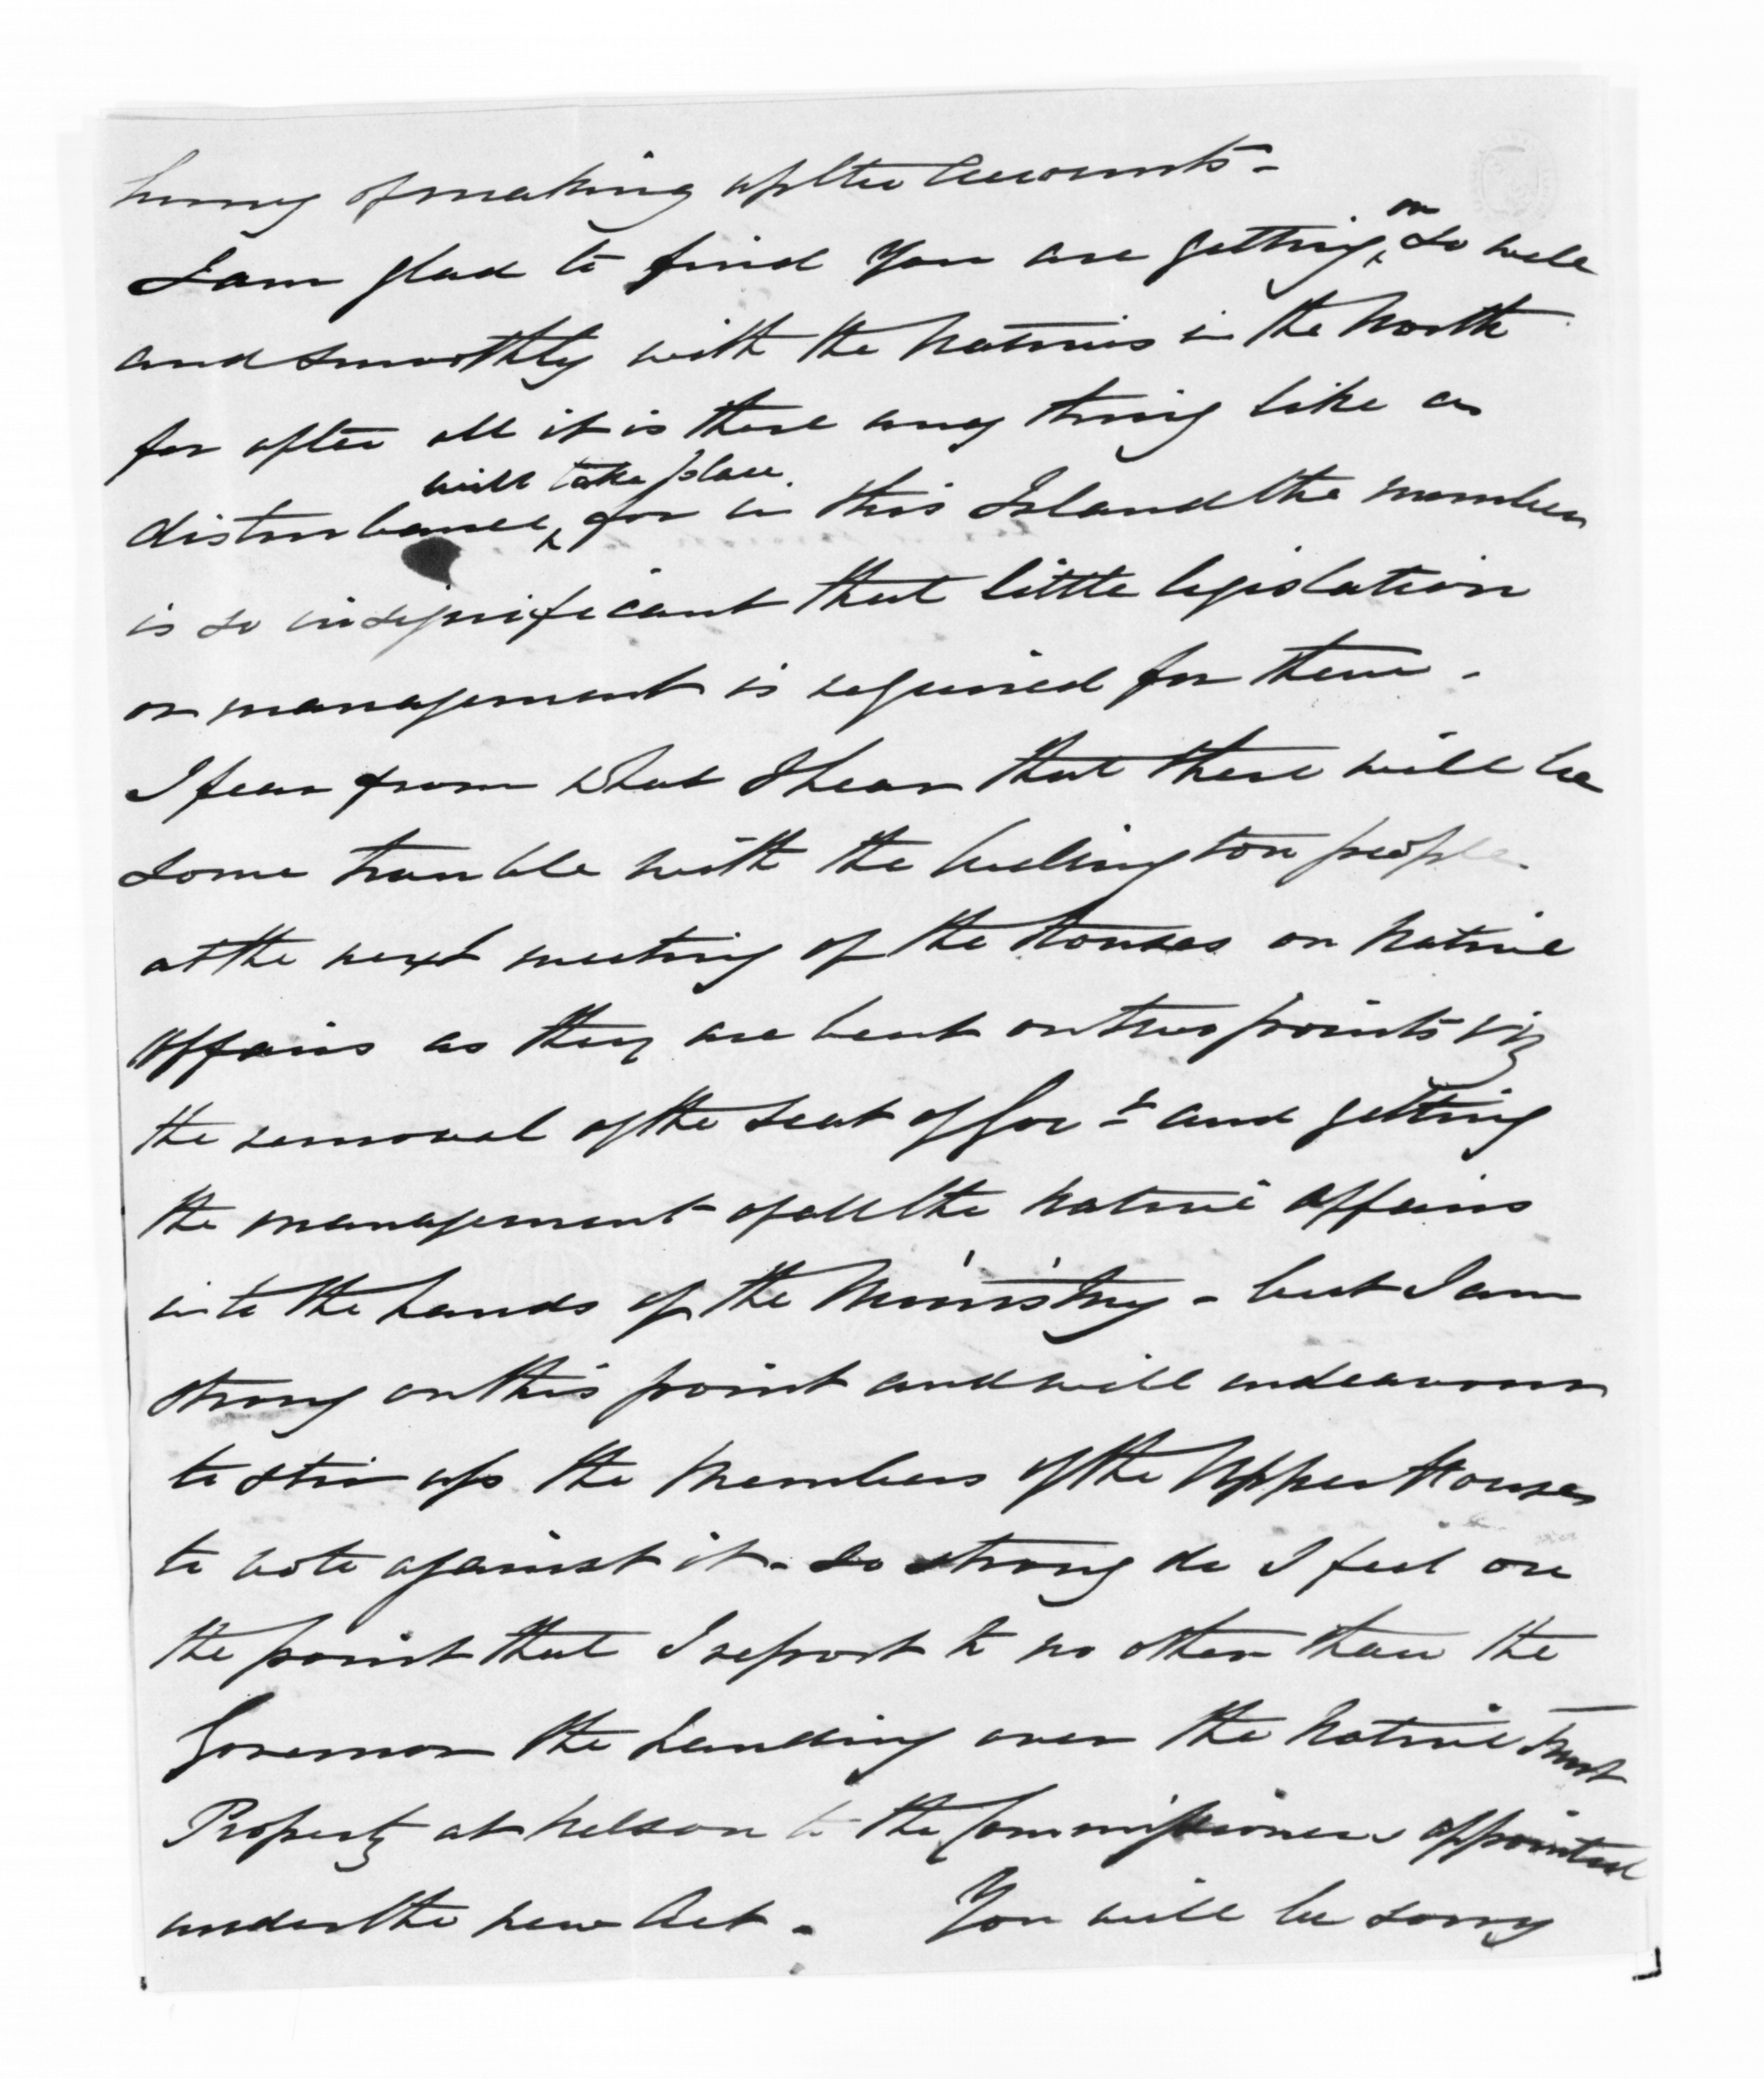 hurry of making up the Accounts -
I am glad to find you are getting on so well
and smoothly with the Natives in the North
for after all it is there any thing like a
disturbance will take place. for in this Island the number
is so insignificant that little legislation
or management is required for them.
I fear from what I hear that there will be
some trouble with the Wellington people
at the next meeting of the Houses on Native
affairs as they are bent on two points viz
the removal of the Seat of Govt and getting
the management of all the Native affairs
into the hands of the Ministry - but I am
strong on this point and will endeavour
to stir up the Members of the Upper Houses
to vote against it - so strong do I feel on
the point that I report to no other than the
Governor the handing over the Native Trust
Property at Nelson to the Commissioners appointed
under the new Act - You will be sorry